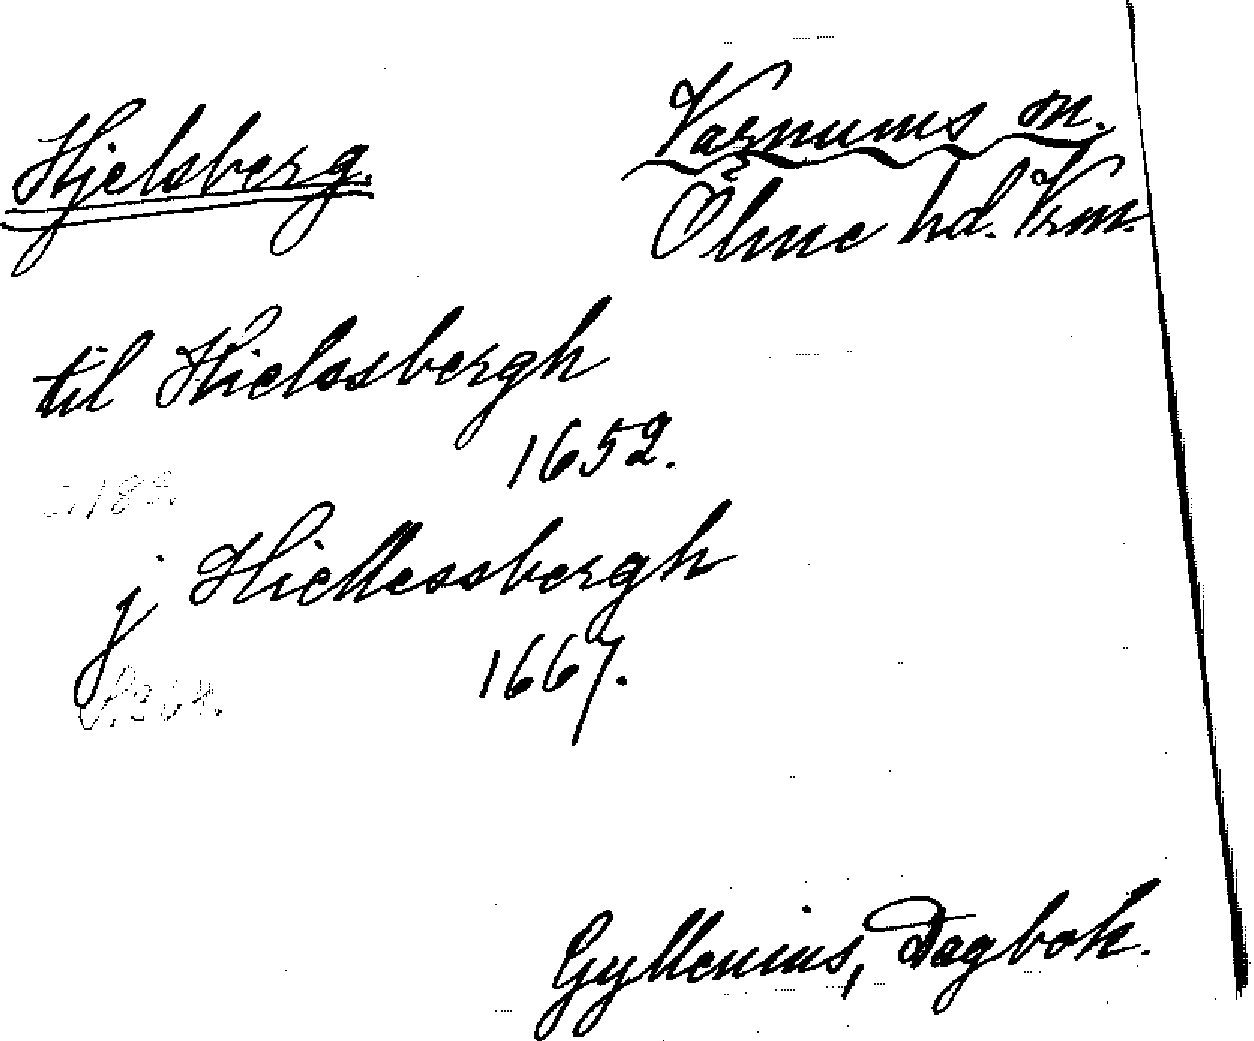 Hjelsberg.
Varnums sn.
Ölme hd. Vrm.
til Hielssbergh
1652.
s. 182.
j Hiellessbergh
1667.
s. 364.
Gyllenius, Dagbok.